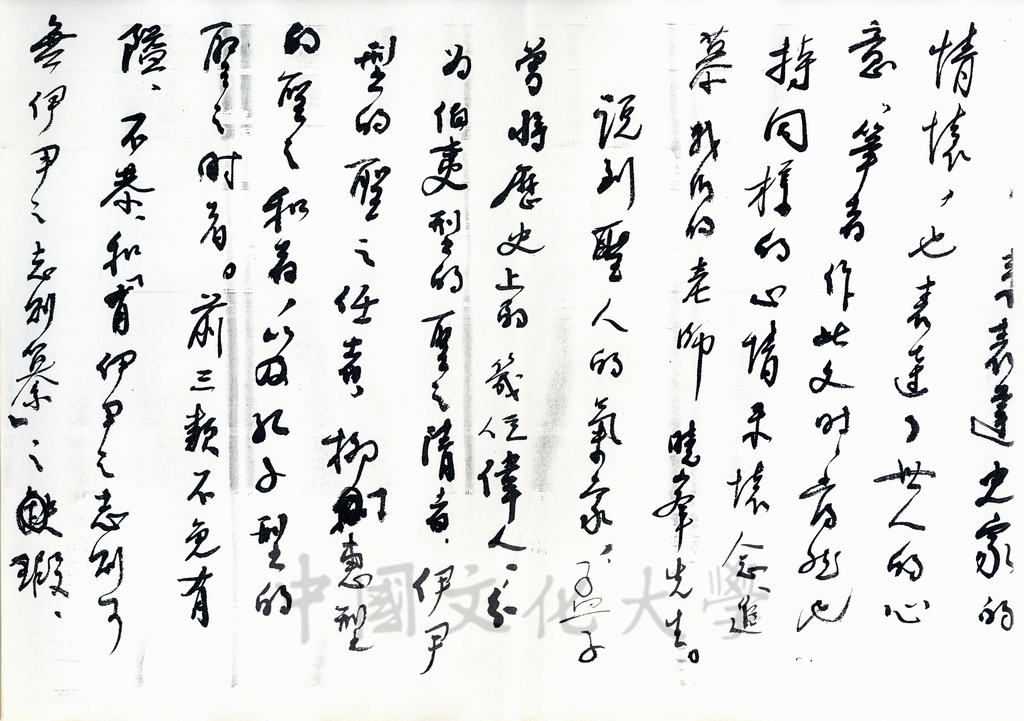 表達史家的
情懷，也表達了世人的心
意，筆者作此文時，當然也
持同樣的心情來懷念追
慕我們的老師曉峯先生。
說到聖人的氣象，孟子
曾將歷史上的幾位偉人，分
为伯夷型的聖之清者，伊尹
型的聖之任者，柳惠型
的聖之和者，以及孔子型的
聖之时者。前三類不免有
隘、不恭、和「有伊尹之志則可
無伊尹之志則篡」之缺瑕，
中國文化大學